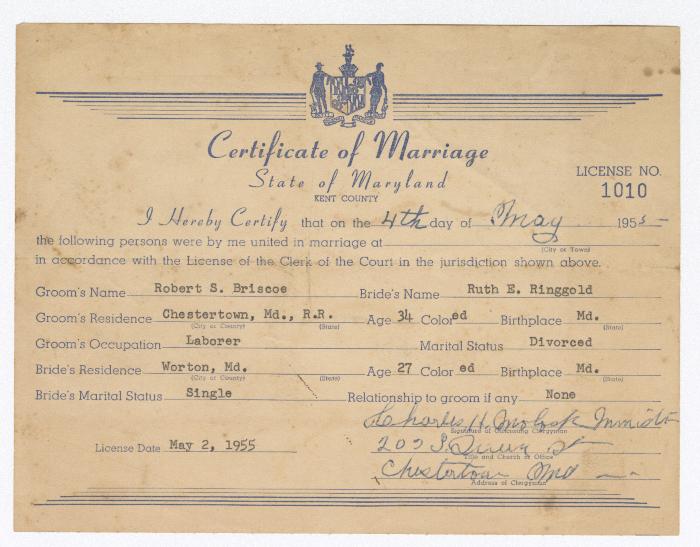 Certificate of Marriage
State of Maryland
KENT COUNTY
LICENSE NO.
1010
I Hereby Certify that on the 4th day of May 1955
the following persons were by me united in marriage at
(City or Town)
in accordance with the License of the Clerk of the Court in the jurisdiction shown above.
Groom's Name Robert S. Briscoe Bride's Name Ruth E. Ringgold
Groom's Residence Chestertown, Md., R.R. Age 34 Colored Birthplace Md.
(City or County) (State) (State)
Groom's Occupation Laborer Marital Status Divorced
Bride's Residence Worton, Md. Age 27 Color ed Birthplace Md.
(City or County) (State) (State)
Bride's Marital Status Single Relationship to groom if any None
Charles H.
Signature of Officiating Clergyman
License Date May 2, 1955
Title and Church of Office
Chestertown Md
Address of Clergyman